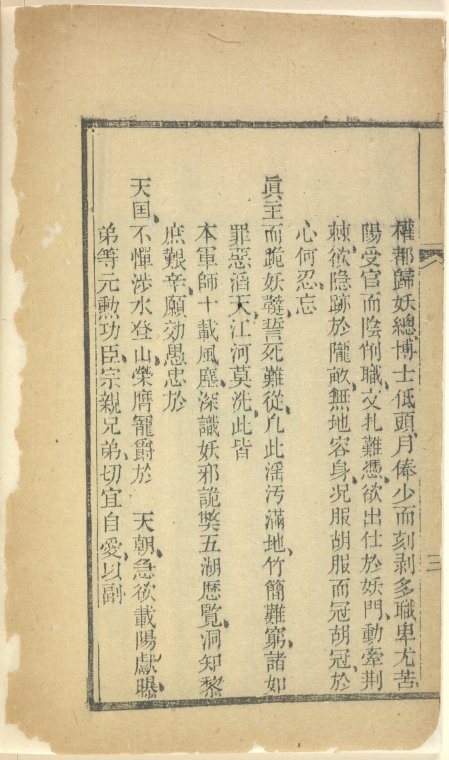 權都歸妖總博士低頭月俸少而刻剥多職卑尤苦
陽受官而陰削職文札難憑欲出仕於妖門動牽荆
棘欲隐跡於隴畝無地容身况服胡服而冠胡冠於
心何忍忘
眞主而跪妖韃誓死難從凢此滛汚滿地竹簡難窮諸如
罪惡滔天江河莫洗此皆
本軍師十載風塵深識妖邪詭弊五湖歷覽洞知黎
庶艱辛願効愚忠於
天囯不憚涉水登山榮膺寵爵於 天朝急欲載陽獻曝
弟等元勲功臣宗親兄弟切宜自愛以副
三